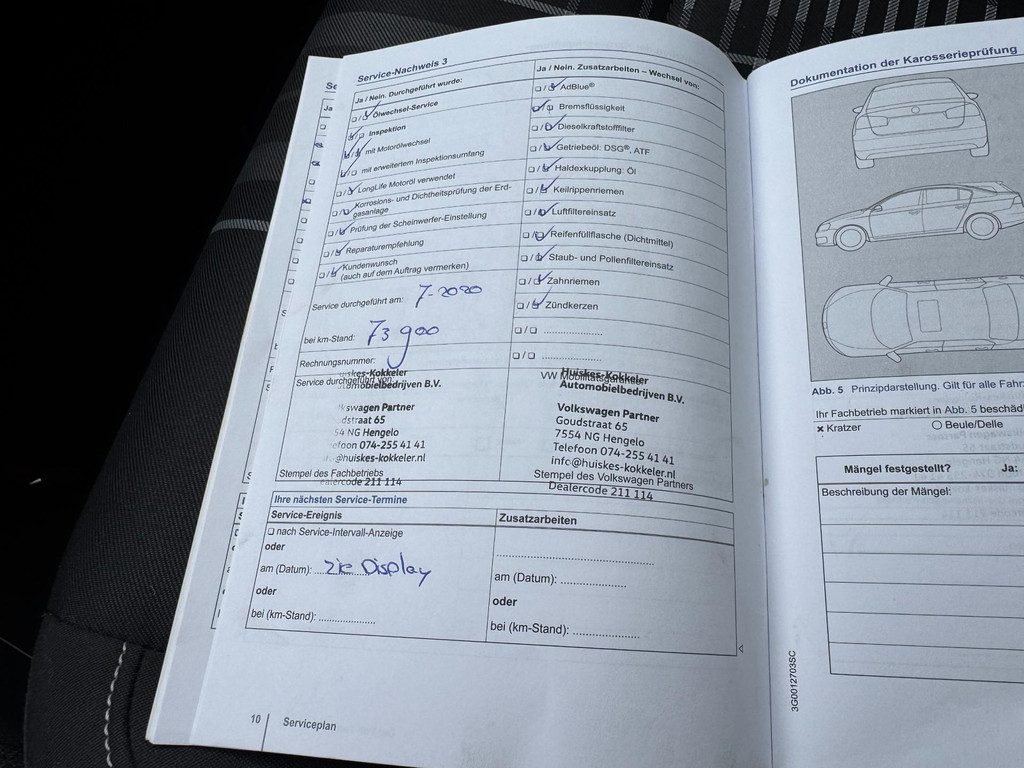 Service-Nachweis 3
Ja / Nein. Durchgeführt wurde:
Ölwechsel-Service
Inspektion
mit Motorölwechsel
mit erweitertem Inspektionsumfang
LongLife Motoröl verwendet
Korrosions- und Dichtheitsprüfung der Erd-
gasanlage
Prüfung der Scheinwerfer-Einstellung
Reparaturempfehlung
Kundenwunsch
(auch auf dem Auftrag vermerken)
Service durchgeführt am: 7-2020
bei km-Stand: 73900
Rechnungsnummer:
Service durchgeführt von
Huiskes-Kokkeler
Automobielbedrijven B.V.
Volkswagen Partner
Goudstraat 65
7554 NG Hengelo
Telefoon 074-255 41 41
info@huiskes-kokkeler.nl
Stempel des Fachbetriebs
Dealercode 211 114
Ja / Nein. Zusatzarbeiten – Wechsel von:
AdBlue®
Bremsflüssigkeit
Dieselkraftstofffilter
Getriebeöl: DSG®, ATF
Haldexkupplung: Öl
Keilrippenriemen
Luftfiltereinsatz
Reifenfüllflasche (Dichtmittel)
Staub- und Pollenfiltereinsatz
Zahnriemen
Zündkerzen
VW Mobilitätsgarantie
Huiskes-Kokkeler
Automobielbedrijven B.V.
Volkswagen Partner
Goudstraat 65
7554 NG Hengelo
Telefoon 074-255 41 41
info@huiskes-kokkeler.nl
Stempel des Volkswagen Partners
Dealercode 211 114
Ihre nächsten Service-Termine
Service-Ereignis
nach Service-Intervall-Anzeige
oder
am (Datum): zie Display
oder
bei (km-Stand):
Zusatzarbeiten
am (Datum):
oder
bei (km-Stand):
10 Serviceplan
Dokumentation der Karosserieprüfung
Abb. 5 Prinzipdarstellung. Gilt für alle
Ihr Fachbetrieb markiert in Abb. 5
× Kratzer
Beule/Delle
Mängel festgestellt? Ja:
Beschreibung der Mängel:
3G0012703SC